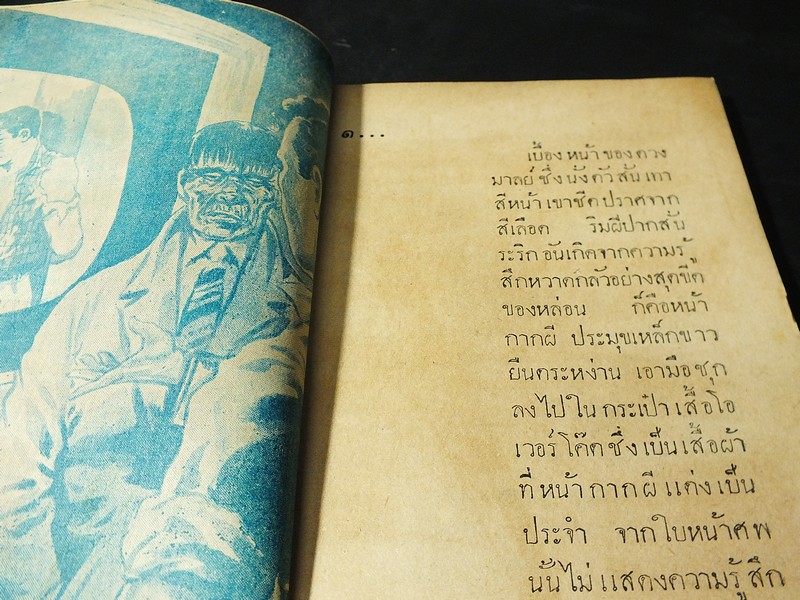 ๑...
เบื้องหน้าของดวง
มาลย์ ซึ่งนั่งตัวสั่นเทา
สีหน้าเขาซีดปราศจาก
สีเลือด ริมฝีปากสั่น
ระริกอันเกิดจากความรู้
สึกหวาดกลัวอย่างสุดขีด
ของหล่อน ก็คือหน้า
กากผี ประมุขเหล็กขาว
ยืนตระหง่าน เอามือซุก
ลงไปในกระเป๋าเสื้อโอ
เวอร์โค๊ตซึ่งเป็นเสื้อผ้า
ที่หน้ากากผีแต่งเป็น
ประจำ จากใบหน้าศพ
นั้นไม่แสดงความรู้สึก